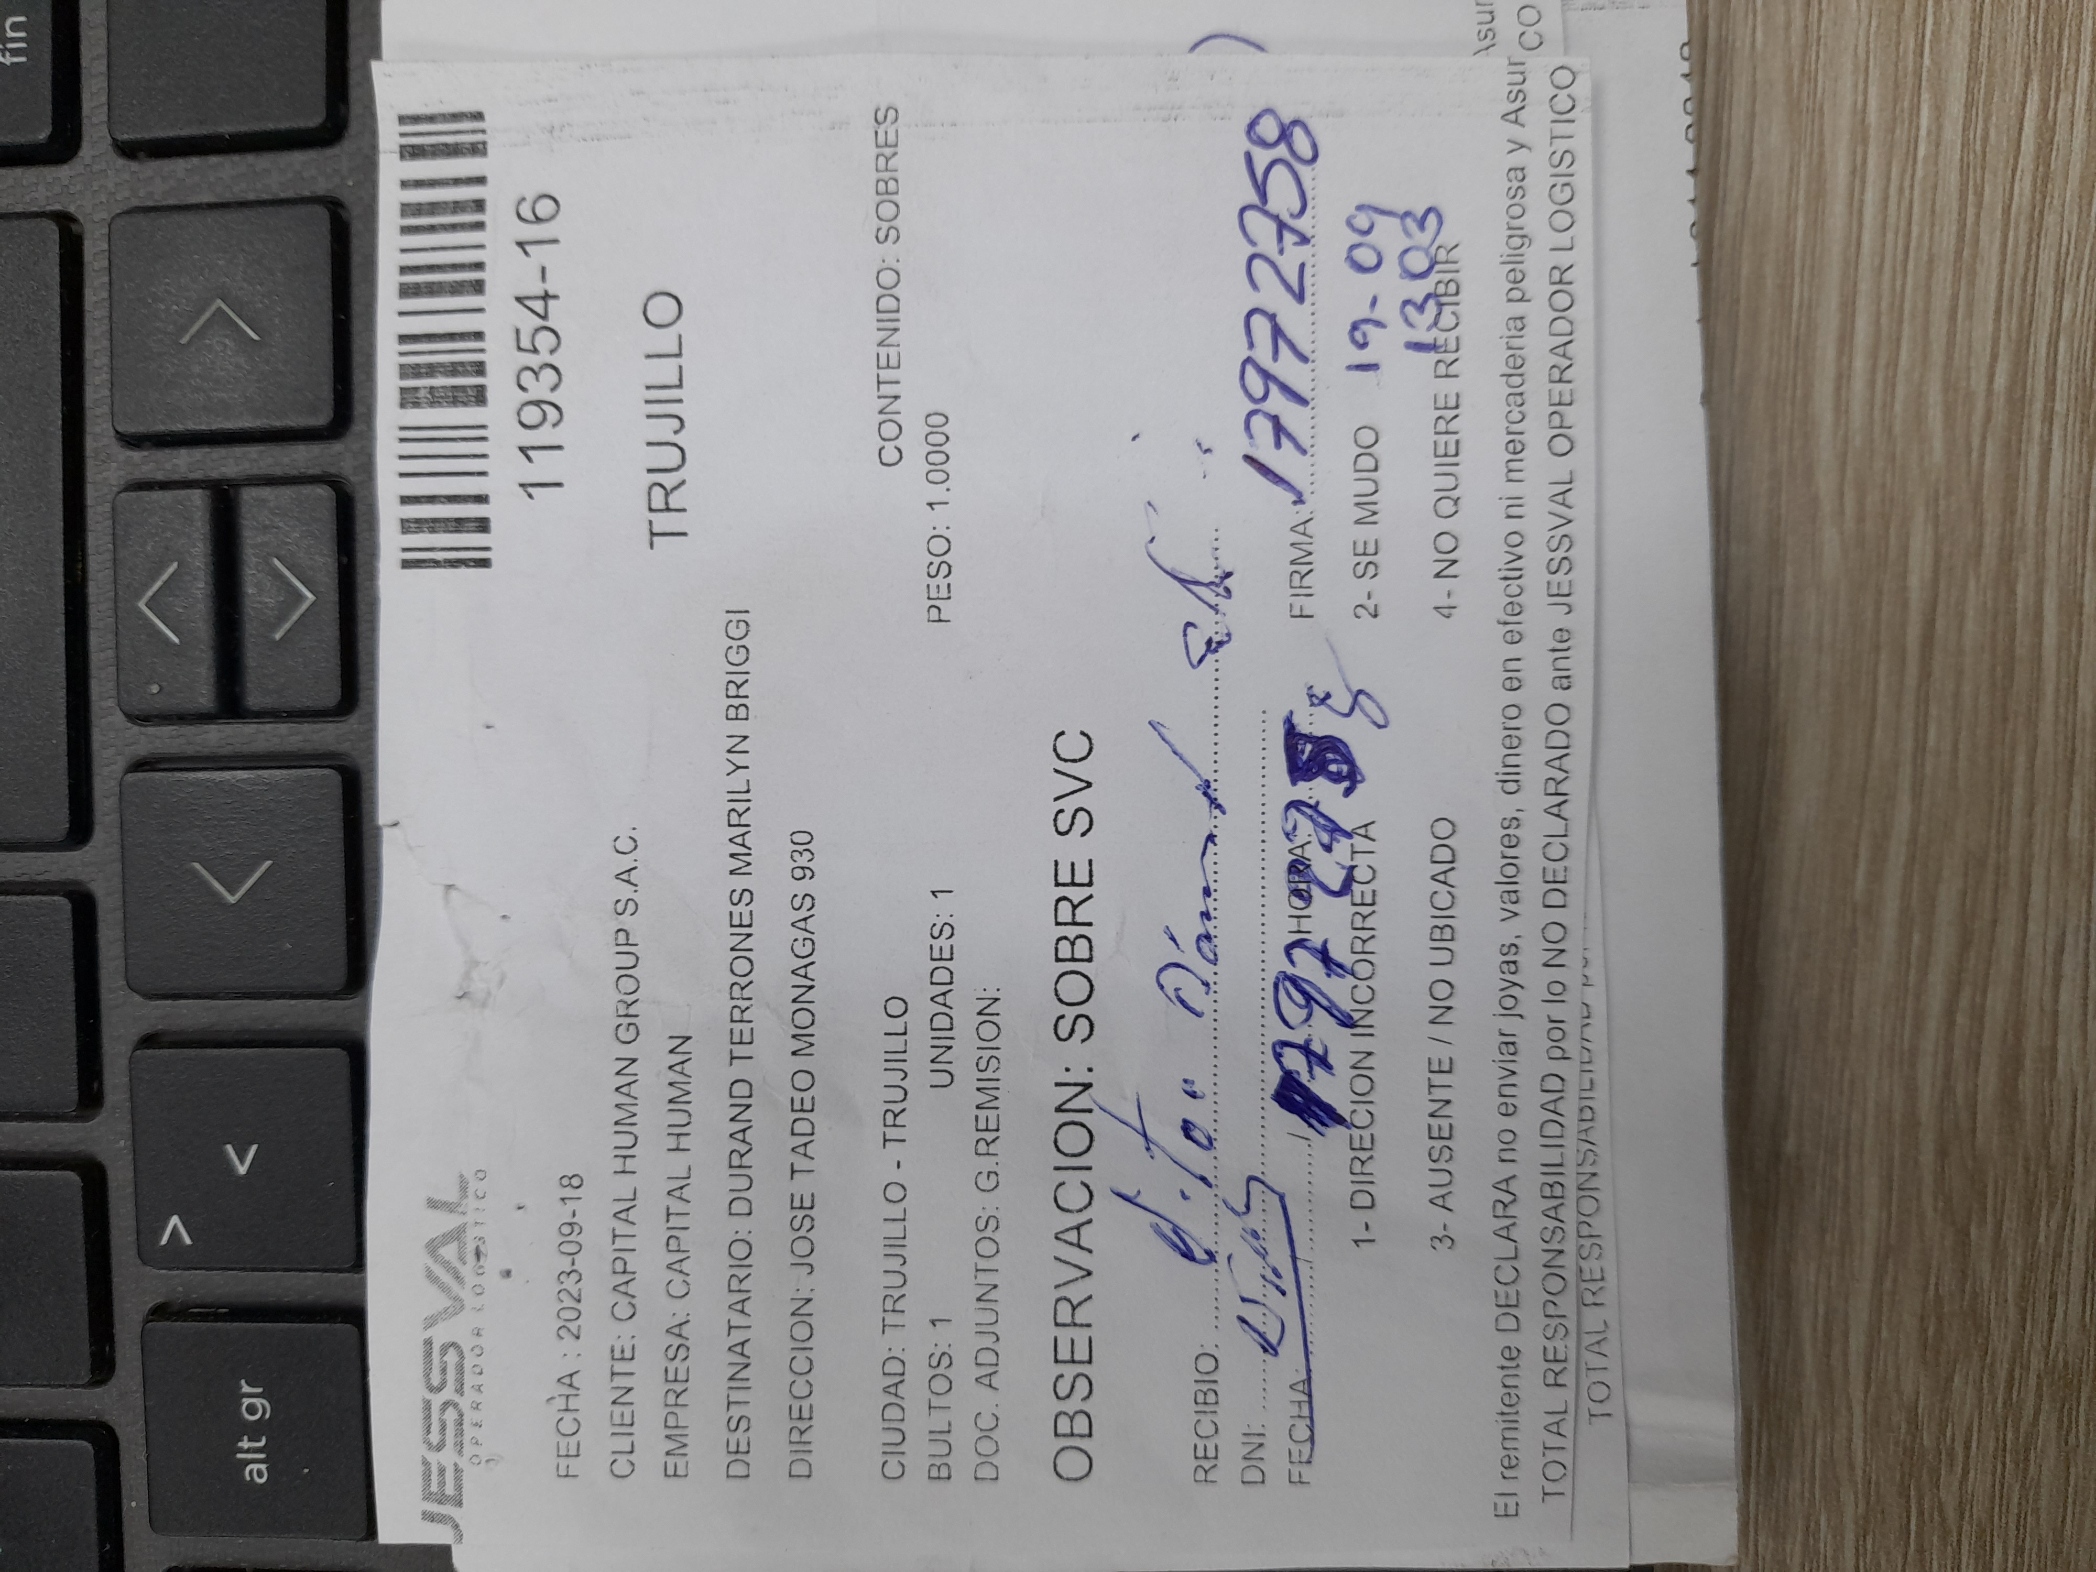 fin
alt gr
>
<
JESSVAL
OPERADOR LOGISTICO
119354-16
FECHA : 2023-09-18
CLIENTE: CAPITAL HUMAN GROUP S.A.C.
EMPRESA: CAPITAL HUMAN
TRUJILLO
DESTINATARIO: DURAND TERRONES MARILYN BRIGGI
DIRECCION: JOSE TADEO MONAGAS 930
CIUDAD: TRUJILLO - TRUJILLO CONTENIDO: SOBRES
BULTOS: 1 UNIDADES: 1 PESO: 1.0000
DOC. ADJUNTOS: G.REMISION:
OBSERVACION: SOBRE SVC
RECIBIO:
DNI:
FECHA: / / HORA: FIRMA: 17972758
1- DIRECION INCORRECTA 2- SE MUDO 19-09
1303
3- AUSENTE / NO UBICADO 4- NO QUIERE RECIBIR
El remitente DECLARA no enviar joyas, valores, dinero en efectivo ni mercaderia peligrosa y Asur
TOTAL RESPONSABILIDAD por lo NO DECLARADO ante JESSVAL OPERADOR LOGISTICO
Asur
CO
TOTAL RESPONSABILIDAD